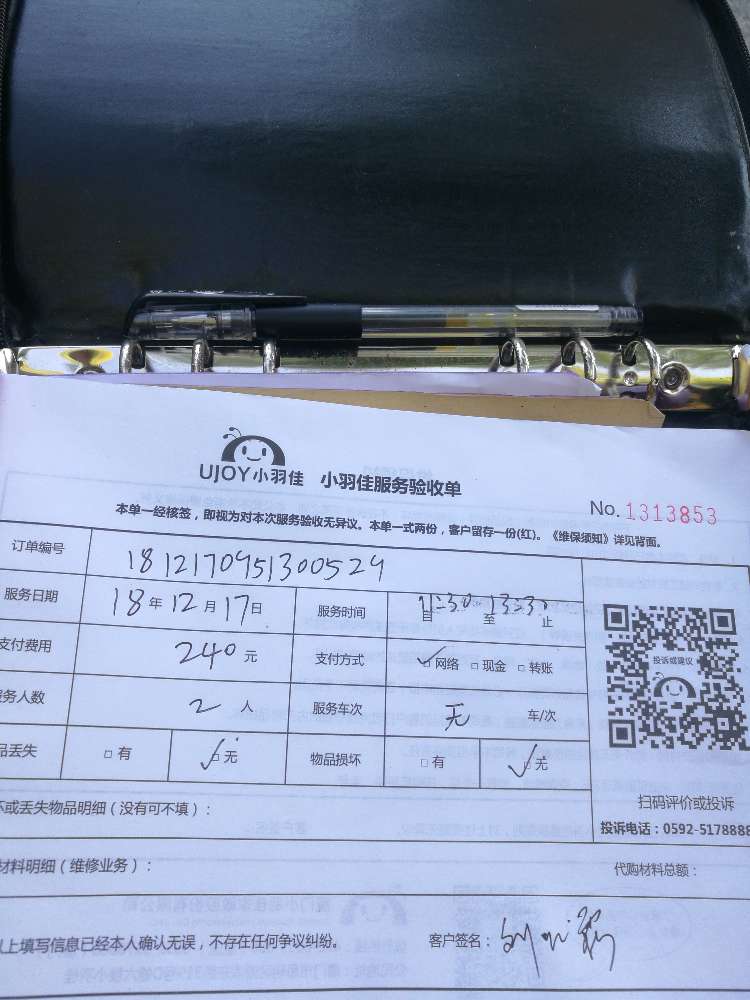 UJOY小羽佳 小羽佳服务验收单
No. 1313853
本单一经核签，即视为对本次服务验收无异议。本单一式两份，客户留存一份(红)。《维保须知》详见背面。
订单编号 181217095130052​9
服务日期 18年12月17日 服务时间 11:30 13:30 自 至 止
支付费用 240元 支付方式 网络 现金 转账
务人数 2人 服务车次 无 车/次
品丢失 有 无 物品损坏 有 无
投诉或建议
扫码评价或投诉
投诉电话：0592-5178888
坏或丢失物品明细（没有可不填）：
材料明细（维修业务）： 代购材料总额：
以上填写信息已经本人确认无误，不存在任何争议纠纷。 客户签名：